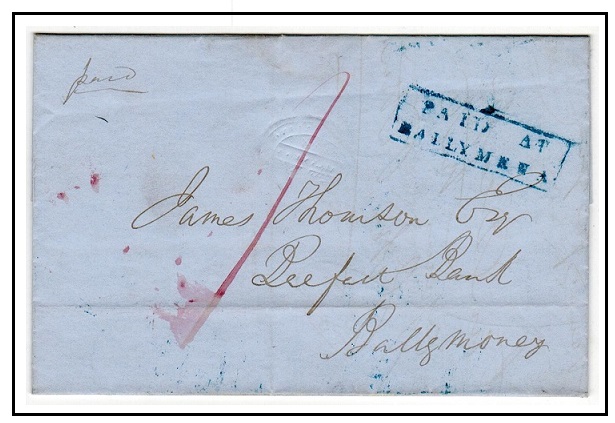 paid
PAID AT
BALLYMENA
1
James Thomson Esq
Belfast Bank
Ballymoney